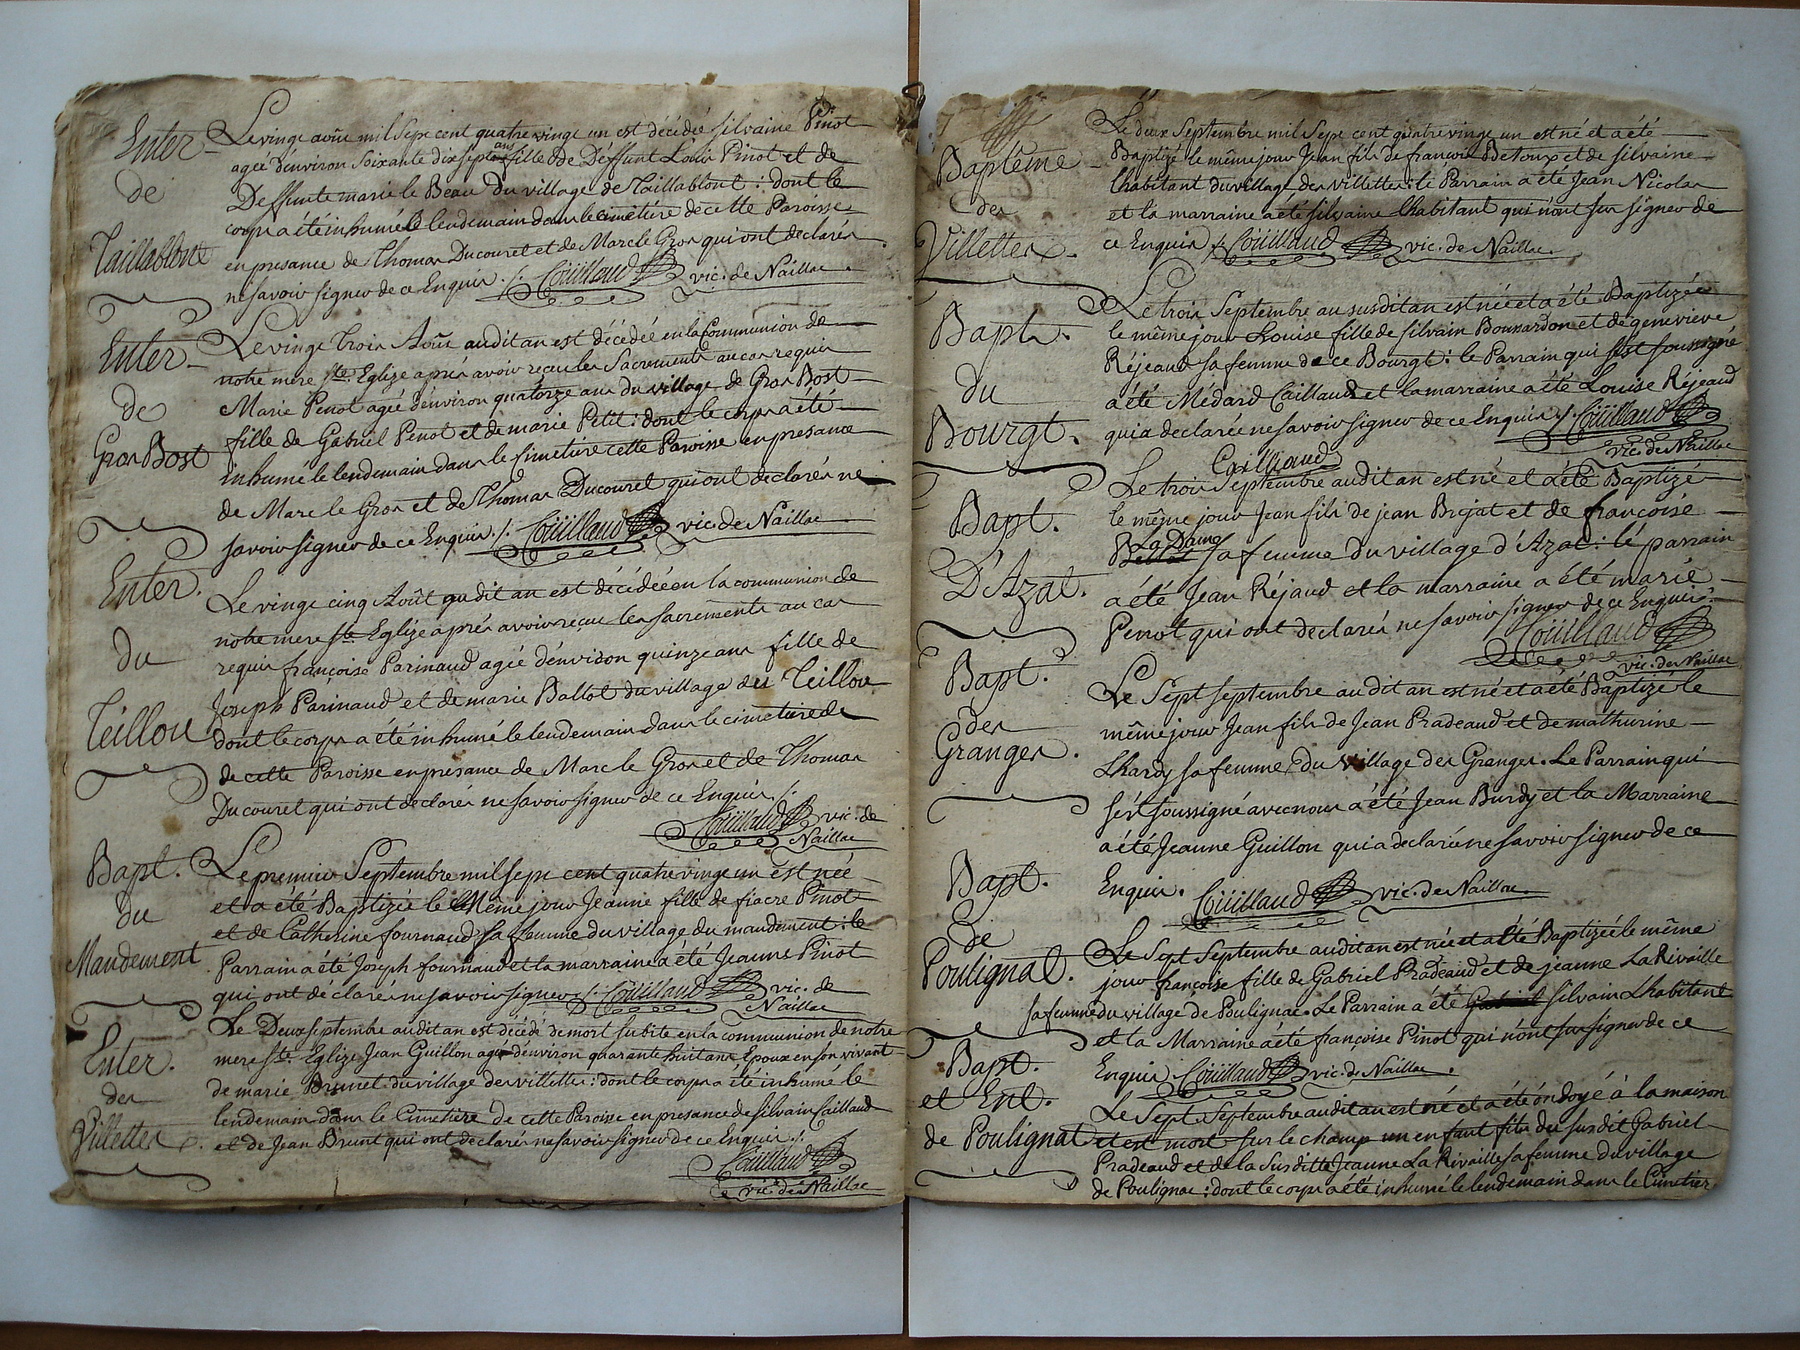 Enter
de
Taillablont
Le vingt aoûu mil sept cent quatre vingt un est décédée silvaine Pinot
agée d'environ soixante dix sept ans fille de Deffunt Louis Pinot et de
Deffunte marie le Beau du village de Taillablont : dont le
corps a été inhumé le lendemain dans le cimetière de cette Paroisse
en presance de Thomas Ducouret et de Marc le Gros qui ont declarés
ne savoir signer de ce Enquis ./. Coüillaud vic. de Naillac.
Enter
de
Gros Bost
Le vingt trois Août audit an est décédée en la Communion de
notre mere Ste. Eglize après avoir reçeu les Sacrements au cas requis
Marie Penot agée d'environ quatorze ans du village de Gros Bost
fille de Gabriel Penot et de marie Petit : dont le corps a été
inhumé le lendemain dans le Cimetière cette Paroisse en presance
de Marc le Gros et de Thomas Ducouret qui ont declarés ne
savoir signer de ce Enquis ./. Coüillaud vic. de Naillac
Enter.
du
Teillou
Le vingt cinq Août audit an est décédée en la communion de
notre mere Ste Eglize après avoir reçue les sacrements au cas
requis françoise Parinaud agée d'environ quinze ans fille de
Joseph Parinaud et de marie Ballot du village du Teillou
dont le corps a été inhumé le lendemain dans le cimetiere de
de cette Paroisse en presance de Marc le Gros et de Thomas
Ducouret qui ont declarés ne savoir signer de ce Enquis ./.
Coüillaud vic. de
Naillac
Bapt.
du
Mandement
Le premier Septembre mil sept cent quatre vingt un est née
et a été Baptizée le Même jour Jeanne fille de fiacre Pinot
et de Catherine fournaud sa femme du village du mandement : le
Parrain a été Joseph fournaud et la marraine a été Jeanne Pinot
qui ont déclarés ne savoir signer ./. Coüillaud vic. de
Naillac
Enter.
des
Villettes
Le Deux septembre audit an est décédé de mort subite en la communion de notre
mere Ste. Eglize Jean Guillon agé d'environ quarante huit ans Epoux en son vivant
de marie Brunet du village des villettes : dont le corps a été inhumé le
lendemain dans le Cimetière de cette Paroisse en presance de silvain Caillaud
et de Jean Brunet qui ont declarés ne savoir signer de ce Enquis ./.
Coüillaud
vic. de Naillac
Baptême
des
Villettes.
Le deux Septembre mil sept cent quatre vingt un est né et a été
Baptizé le même jour Jean fils de françois Betoux et de silvaine
Lhabitant du village des villettes : le Parrain a été Jean Nicolas
et la marraine a été silvaine Lhabitant qui n'ont sur signer de
ce Enquis ./. Coüillaud vic. de Naillac.
Bapt.
du
Bourgt.
Le trois Septembre au susdit an est née et a été Baptizée
le même jour Louise fille de silvain Boussardon et de genevieve
Réjeaud sa femme de ce Bourgt : le Parrain qui s'est soussigné
a été Médard Caillaud et la marraine a été Louise Réjeaud
qui a declarée ne savoir signer de ce Enquis ./. Coüillaud
vic. de Naillac
Cailliaud
Bapt.
D'Azat.
Le trois Septembre audit an est né et a été Baptizé
le même jour Jean fils de jean Brejat et de françoise
La Dame sa femme du village d'Azat : le parrain
a été Jean Réjaud et la marraine a été marie
Penot qui ont declarés ne savoir signer de ce Enquis
Coüillaud
vic. de Naillac
Bapt.
des
Granges.
Le Sept septembre audit an est né et a été Baptizé le
même jour Jean fils de Jean Pradeaud et de mathurine
Lhardy sa femme du village des Granges. Le Parrain qui
s'ést soussigné avec nous a été Jean Burdy et la Marraine
a été Jeanne Guillon qui a declaré ne savoir signer de ce
Enquis. Coüillaud vic. de Naillac.
Bapt.
De
Poulignat.
Le Sept Septembre audit an est née et a été Baptizée le même
jour françoise fille de Gabriel Pradeaud et de jeanne La Rivaille
sa femme du village de Poulignac. Le Parrain a été silvain Lhabitant
et la Marraine a été françoise Pinot qui n'ont sur signer de ce
Enquis Coüillaud vic. de Naillac.
Bapt.
et Ent.
de Poulignat
Le Sept Septembre audit an est né et a été ondoyé à la maison
et est mort sur le champ un enfant fils du susdit Gabriel
Pradeaud et de la susditte Jeanne La Rivaille sa femme du village
de Poulignac : dont le corps a été inhumé le lendemain dans le Cimetier